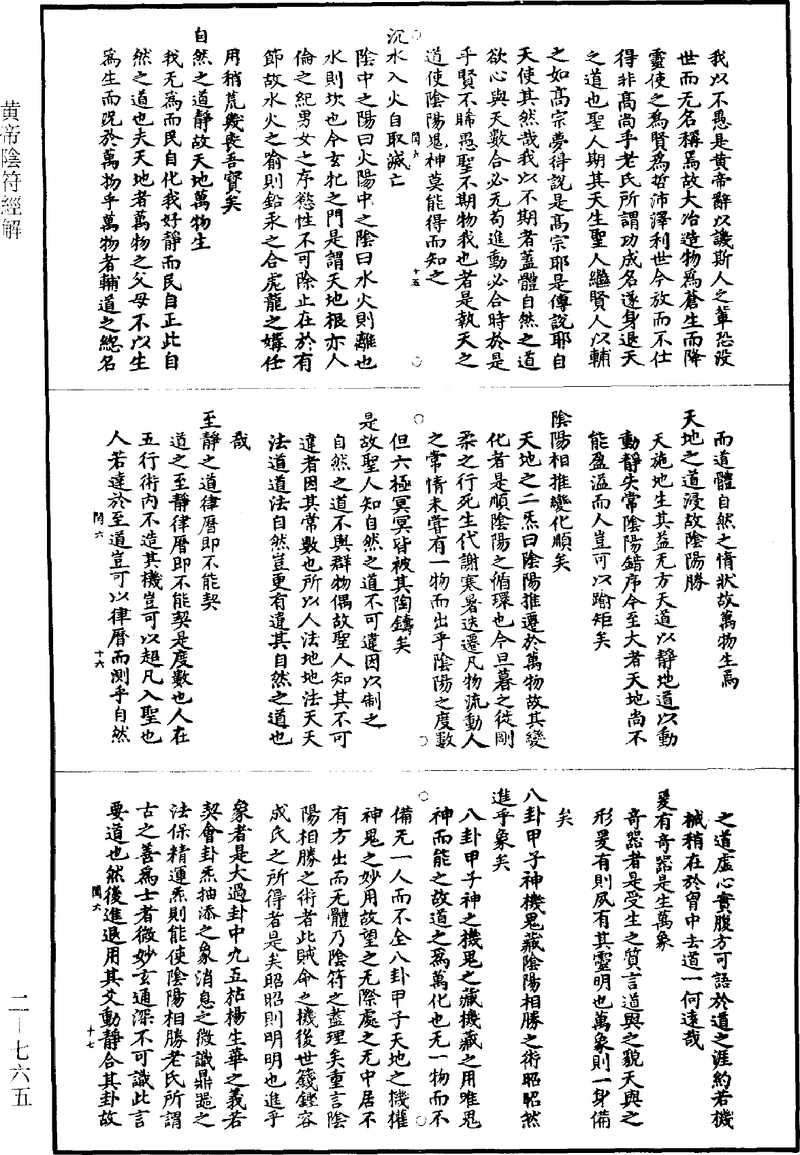 黄帝陰符經解
我以不愚是黄帝辭以譏斯人之輩恐没
世而无名稱焉故大冶造物爲蒼生而降
靈使之爲賢爲哲沛澤利世今放而不仕
得非髙尚乎老氏所謂功成名遂身退天
之道也聖人期其天生聖人繼賢人以輔
之如髙宗夢得説是髙宗耶是傳説耶自
天使其然哉我以不期者蓋體自然之道
欲心與天數合必无苟進動必合時於是
乎賢不睎愚聖不期物我也者是執天之
道使陰陽鬼神莫能得而知之
閏六
十五
沉水入火自取滅亡
陰中之陽曰火陽中之陰曰水火則離也
水則坎也今玄牝之門是謂天地根亦人
倫之紀男女之序慾性不可除止在於有
節故水火之喻則鉛汞之合虎龍之媾任
用稍荒幾喪吾寳矣
自然之道静故天地萬物生
我无爲而民自化我好静而民自正此自
然之道也夫天地者萬物之父母不以生
爲生而况於萬物乎萬物者輔道之緫名
而道體自然之情狀故萬物生焉
天地之道浸故陰陽勝
天施地生其益无方天道以静地道以動
動静失常陰陽錯序今至大者天地尚不
能盈溢而人豈可以踰矩矣
陰陽相推變化順矣
天地之二炁曰陰陽推遷於萬物故其變
化者是順陰陽之循環也今旦暮之從剛
柔之行死生代謝寒暑迭遷凡物流動人
之常情未甞有一物而出乎陰陽之度數
但六極冥冥皆被其陶鑄矣
是故聖人知自然之道不可違因以制之
自然之道不與群物偶故聖人知其不可
違者因其常數也所以人法地地法天天
法道道法自然豈更有違其自然之道也
哉
至静之道律曆即不能契
道之至静律曆即不能契是度數也人在
五行術内不造其機豈可以超凡入聖也
人若達於至道豈可以律曆而測乎自然
閏六
十六
之道虚心實腹方可語於道之涯約若機
械稍在於胷中去道一何逺哉
爰有奇器是生萬象
奇器者是受生之質言道與之貌天與之
形爰有則夙有其靈明也萬象則一身備
矣
八卦甲子神機鬼藏陰陽相勝之術昭昭然
進乎象矣
八卦甲子神之機鬼之藏機藏之用唯鬼
神而能之故道之爲萬化也无一物而不
備无一人而不全八卦甲子天地之機權
神鬼之妙用故望之无際處之无中居不
有方出而无體乃陰符之盡理矣重言陰
陽相勝之術者此賊命之機後世籛鏗容
成氏之所得者是矣昭昭則明明也進乎
象者是大過卦中九五枯楊生華之義若
契會卦炁抽添之象消息之微識鼎噐之
法保精運炁則能使陰陽相勝老氏所謂
古之善爲士者微妙玄通深不可識此言
要道也然後進退用其爻動静合其卦故
閏六
十七
二一七六五